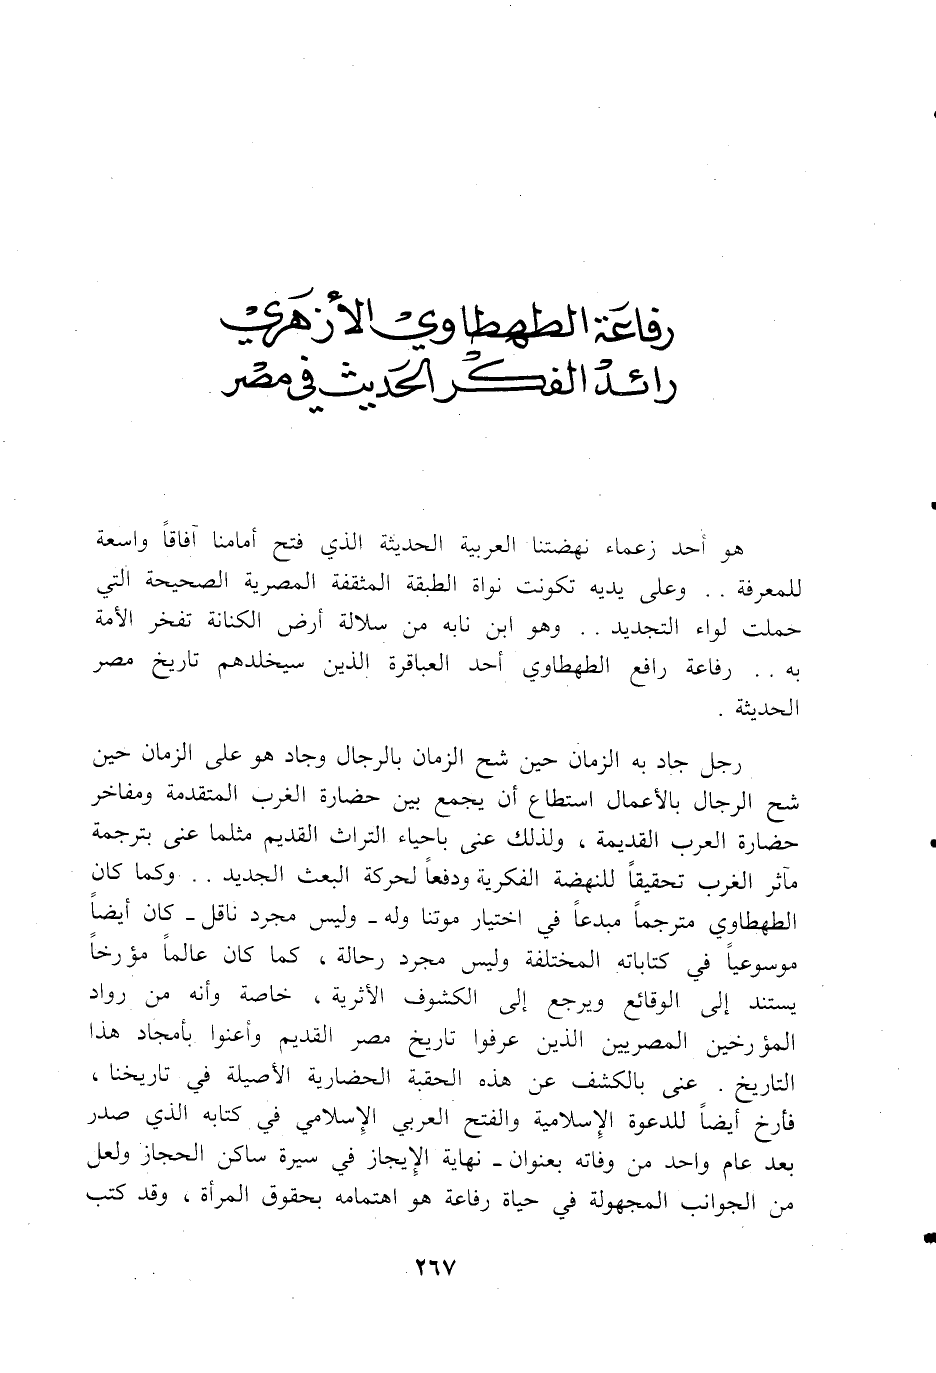 رفاعة الطهطاوي الأزهري
رائد الفكر الحديث في مصر
هو أحد زعماء نهضتنا العربية الحديثة الذي فتح أمامنا آفاقاً واسعة
للمعرفة . . وعلى يديه تكونت نواة الطبقة المثقفة المصرية الصحيحة التي
حملت لواء التجديد . . وهو ابن نابه من سلالة أرض الكنانة تفخر الأمة
به . . رفاعة رافع الطهطاوي أحد العباقرة الذين سيخلدهم تاريخ مصر
الحديثة .
رجل جاد به الزمان حين شح الزمان بالرجال وجاد هو على الزمان حين
شح الرجال بالأعمال استطاع أن يجمع بين حضارة الغرب المتقدمة ومفاخر
حضارة العرب القديمة ، ولذلك عنى باحياء التراث القديم مثلما عنى بترجمة
مآثر الغرب تحقيقاً للنهضة الفكرية ودفعاً لحركة البعث الجديد . . وكما كان
الطهطاوي مترجماً مبدعاً في اختيار موتنا وله - وليس مجرد ناقل - كان أيضاً
موسوعياً في كتاباته المختلفة وليس مجرد رحالة ، كما كان عالماً مؤرخاً
يستند إلى الوقائع ويرجع إلى الكشوف الأثرية ، خاصة وأنه من رواد
المؤرخين المصريين الذين عرفوا تاريخ مصر القديم وأعنوا بأمجاد هذا
التاريخ . عنى بالكشف عن هذه الحقبة الحضارية الأصيلة في تاريخنا ،
فأرخ أيضاً للدعوة الإسلامية والفتح العربي الإسلامي في كتابه الذي صدر
بعد عام واحد من وفاته بعنوان - نهاية الإيجاز في سيرة ساكن الحجاز ولعل
من الجوانب المجهولة في حياة رفاعة هو اهتمامه بحقوق المرأة ، وقد كتب
٢٦٧